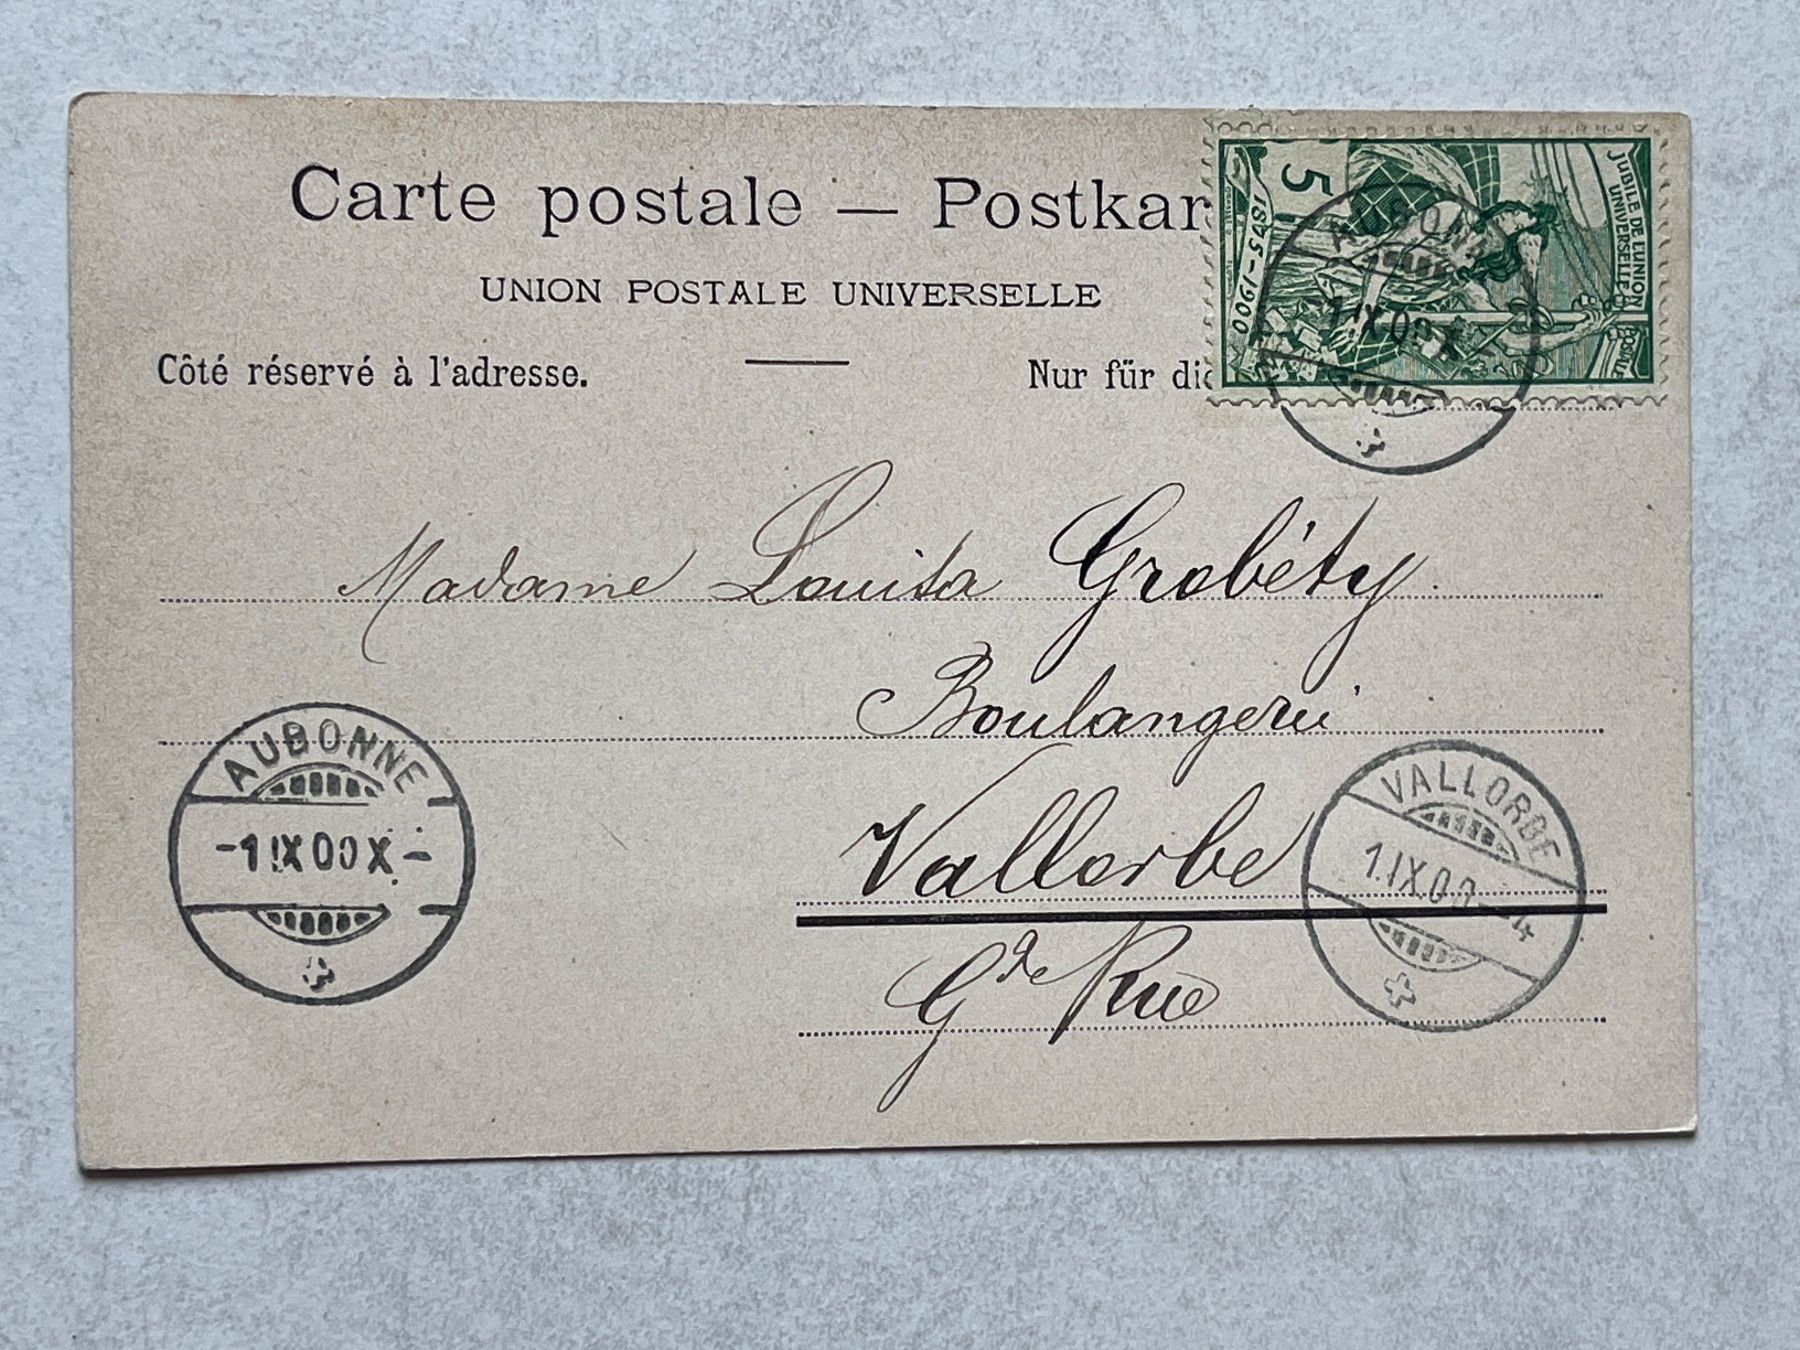 Carte postale — Postkar
UNION POSTALE UNIVERSELLE
Côté réservé à l'adresse.
Nur für di
JUBILÉ DE L'UNION
UNIVERSELLE
POSTALE
5
1875-1900
AUBONNE
1.IX.00
Madame Louisa Grobéty.
Boulangerie
Vallorbe
Gde Rue
AUBONNE
-1.IX.00 X-
VALLORBE
1.IX.00-4